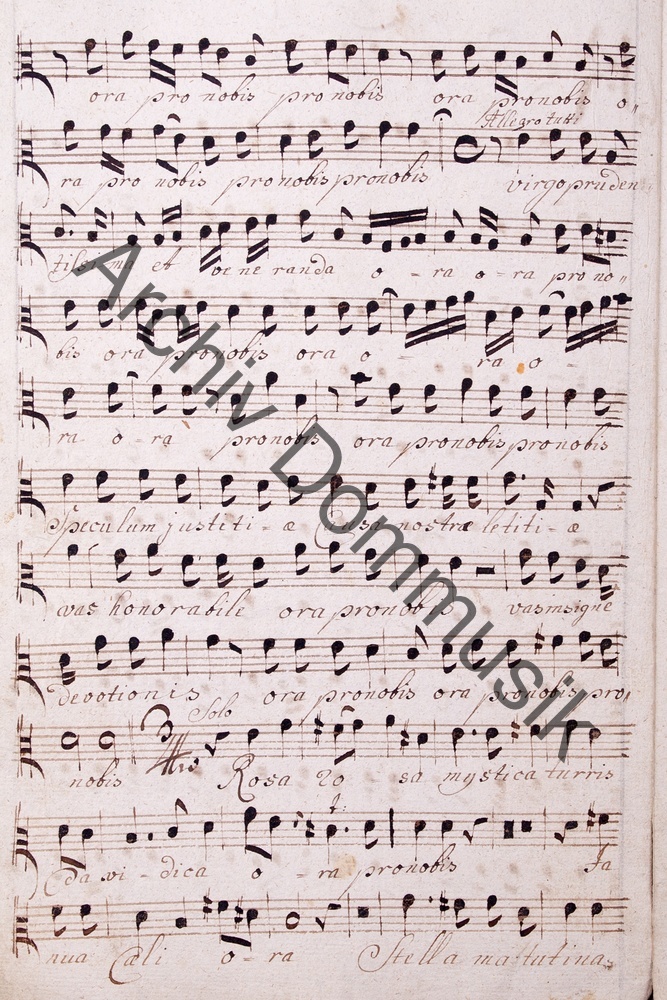 ora pro nobis pro nobis ora pronobis o„
Allegro tutti
ra pro nobis pronobis pronobis virgo pruden
tissima et veneranda o - ra o - ra pro no„
bis ora pronobis ora o - ra o -
ra o - ra pronobis ora pronobis pronobis
Speculum justiti - æ Causa nostræ letiti - æ
vas honorabile ora pronobis vas insigne
devotionis ora pronobis ora pronobis pro„
Solo
nobis Rosa ro - sa mystica turris
da vi - dica o - ra pronobis Ja
nua Cæli o - ra Stella matutina
Archiv Dommusik